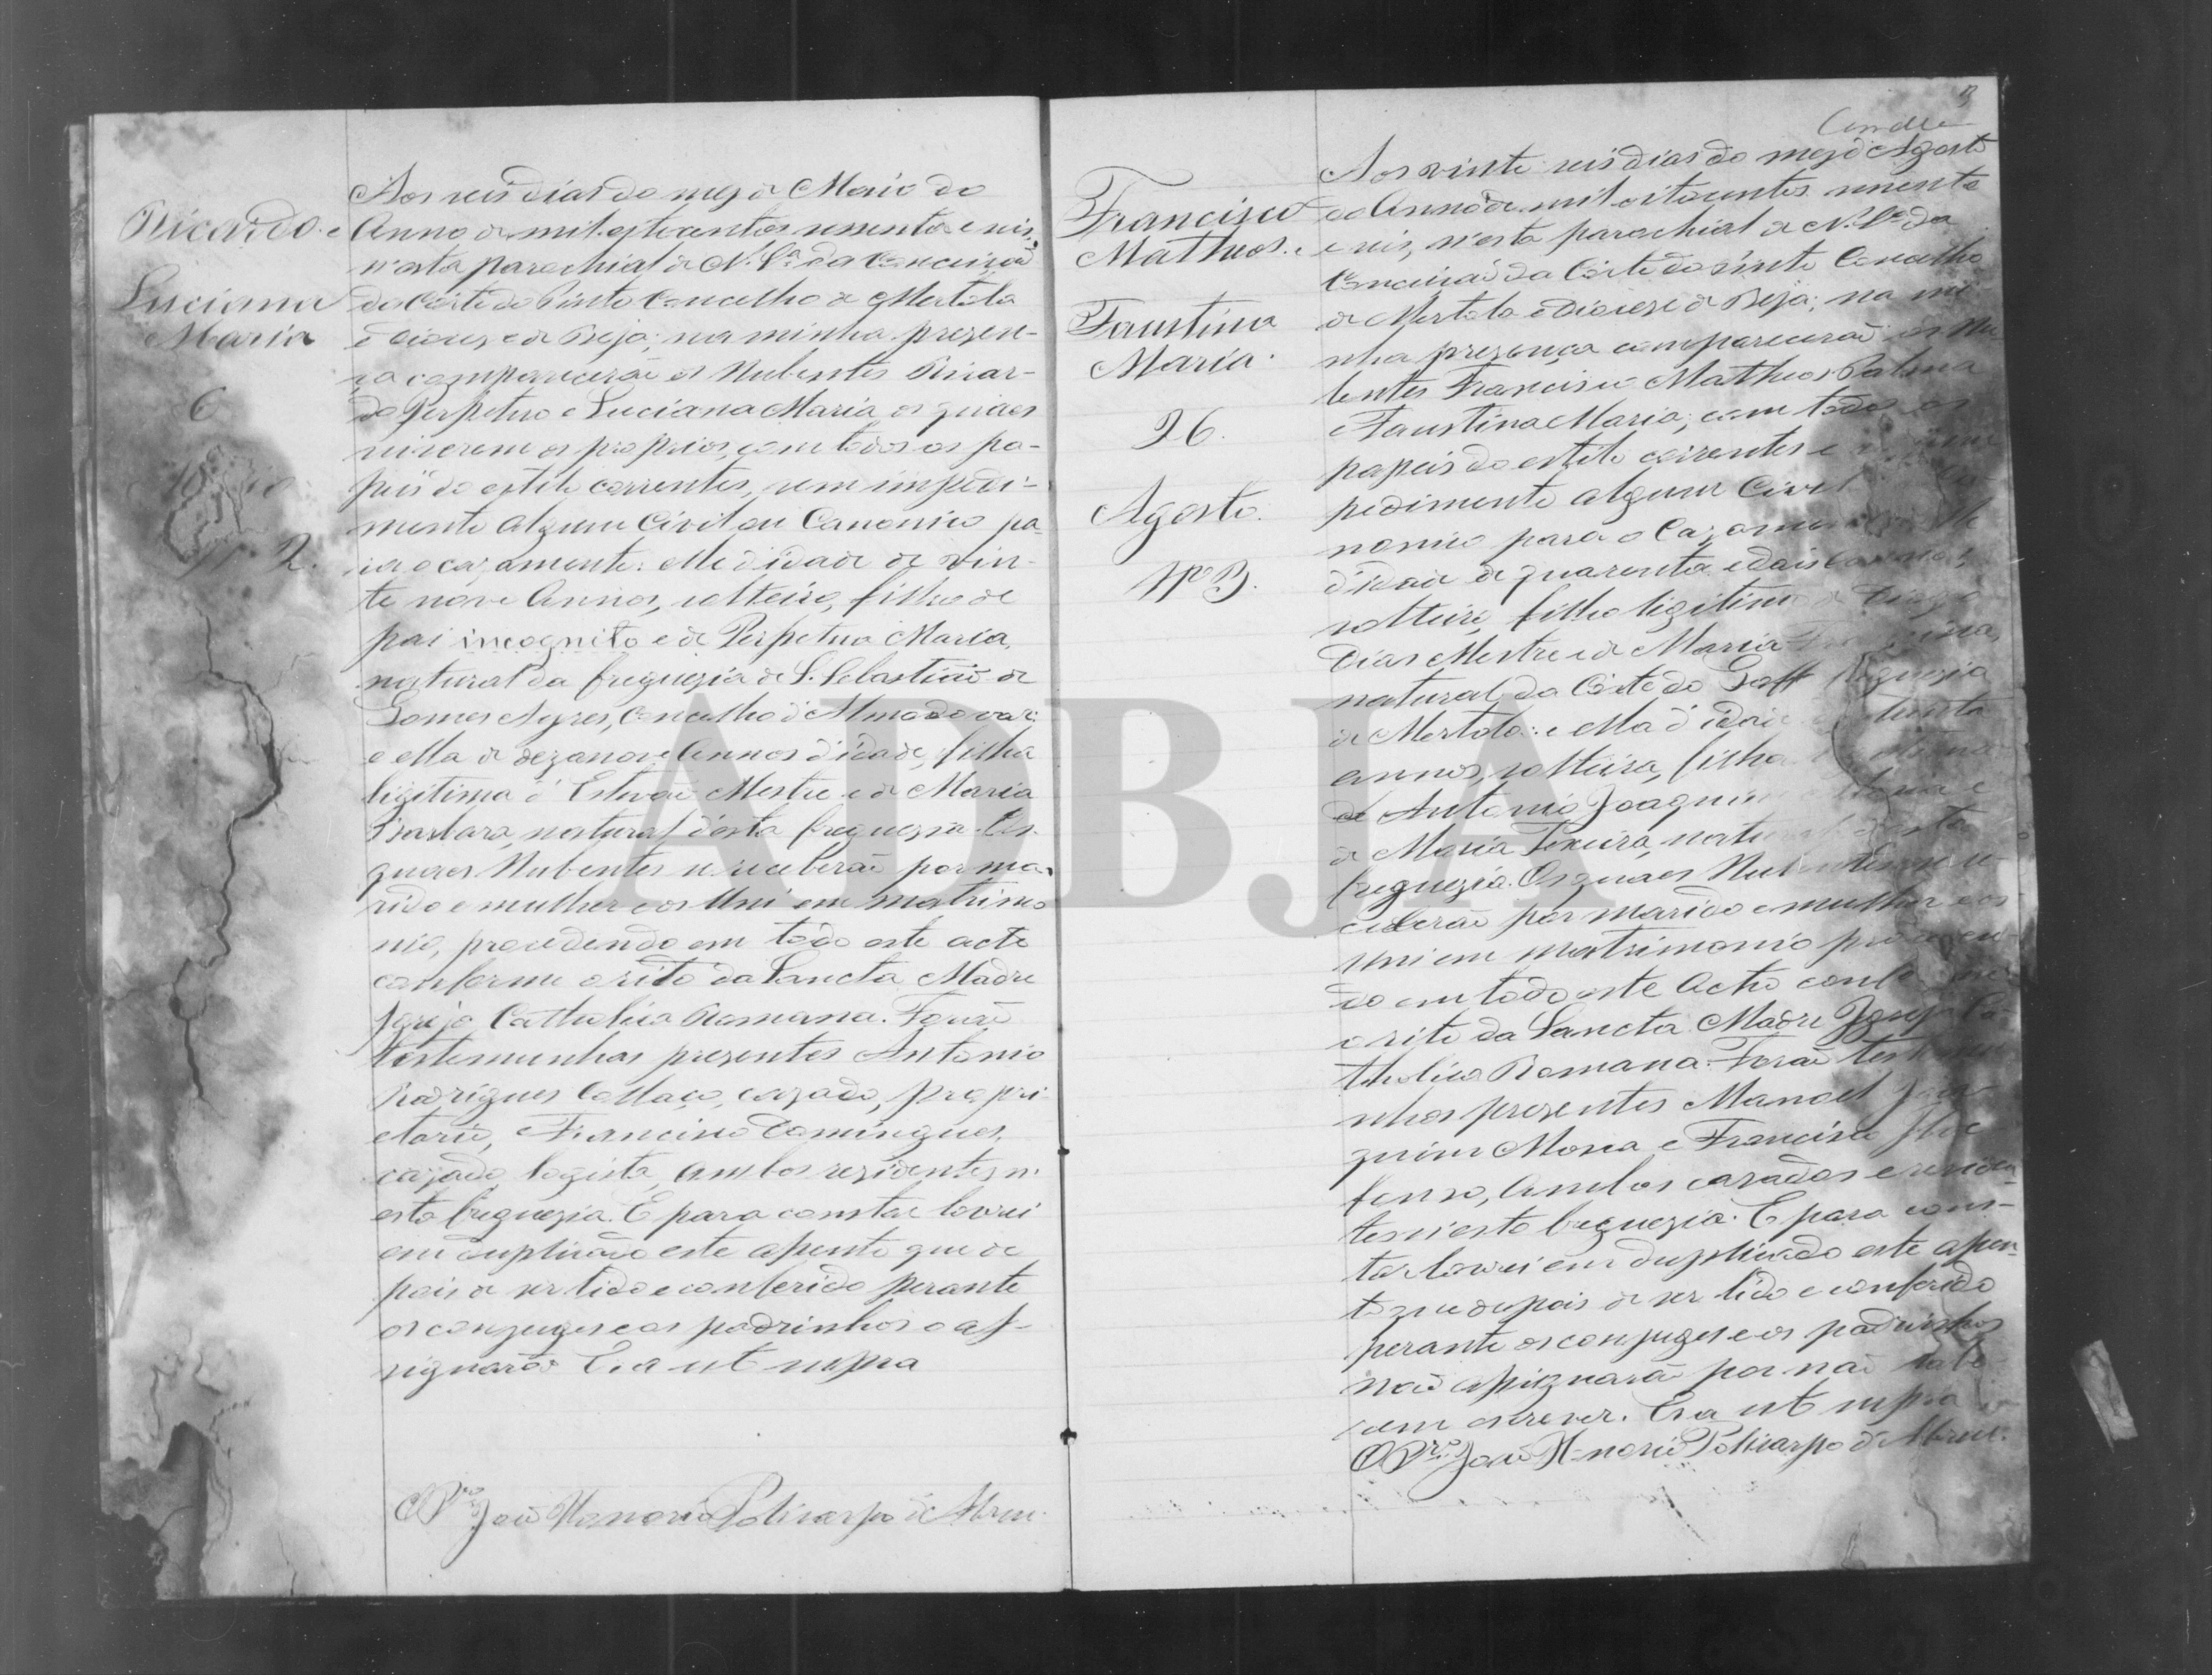 Ricardo e
Luciana
Maria
6
Nº 2.
Aos seis dias do mez de Maio do
Anno de mil oitocentos sesenta e seis,
n'esta parochial de N. Sra. da Conceição
da Corte do Pinto Concelho de Mertola
e Diocese de Beja; na minha prezen-
ça comparecerão os Nubentes Ricar-
do Perpetuo e Luciana Maria os quaes
os proprios, com todos os pa-
peis do estilo correntes, sem impedi-
mento algum Civil ou Canonico pa-
ra o cazamento: elle d'idade de vin-
te nove Annos, solteiro, filho de
pai incognito e de Perpetua Maria,
natural da freguezia de S. Sebastião de
Gomes Ayres, Concelho d'Almodovar;
e ella de dezanove Annos d'idade, filha
legitima d'Estevão Mestre e de Maria
Barbara, natural d'esta freguezia. Os
quaes Nubentes se receberão por ma-
rido e mulher e os Uni em matrimo
nio, procedendo em todo este acto
conforme o rito da Sancta Madre
Igreja Catholica Romana. Forão
testemunhas prezentes Antonio
Rodrigues Collaço, cazado, propri-
etario, Francisco Domingues,
cazado, logista, ambos rezidentes n'
esta freguezia. E para constar lavrei
em duplicado este assento que de
pois de ser lido e conferido perante
os conjuges e os padrinhos o as-
signarão Era ut supra
O Pro João Honorio Policarpo d'Abreu.
Francisco
Matheos. e
Faustina
Maria.
26.
Agosto.
Nº 3.
Aos vinte seis dias do mez d'Agosto
do Anno de mil oitocentos sesenta
e seis, n'esta parochial de N. Sra. da
Conceição da Corte do Pinto Concelho
de Mertola e Diocese de Beja; na mi-
nha prezença comparecerão os Nu
bentes Francisco Matheos Palma
e Faustina Maria, com todos os
papeis do estilo correntes e
pedimento algum Civil
nonico para o Cazamento
d'idade de quarenta e dois annos,
solteiro, filho legitimo
Dias Mestre e de Maria
natural da Corte do freguezia
de Mertola: e ella d'idade
annos, solteira, filha
de Antonio Joaquim
de Maria Teixeira, natural d'esta
freguezia. Os quaes Nubentes se re-
ceberão por marido e mulher e os
uni em matrimonio proceden-
do em todo este Acto conforme
o rito da Sancta Madre Igreja Ca-
tholica Romana. Forão testemu
nhas prezentes Manoel Joa-
quim e Francisco
ambos cazados e reziden
tes n'esta freguezia. E para cons-
tar lavrei em duplicado este assen-
to que depois de ser lido e conferido
perante os conjuges e os padrinhos
não assignarão por não sabe-
rem escrever. Era ut supra
O Pro João Honorio Policarpo d'Abreu.
ADBJA